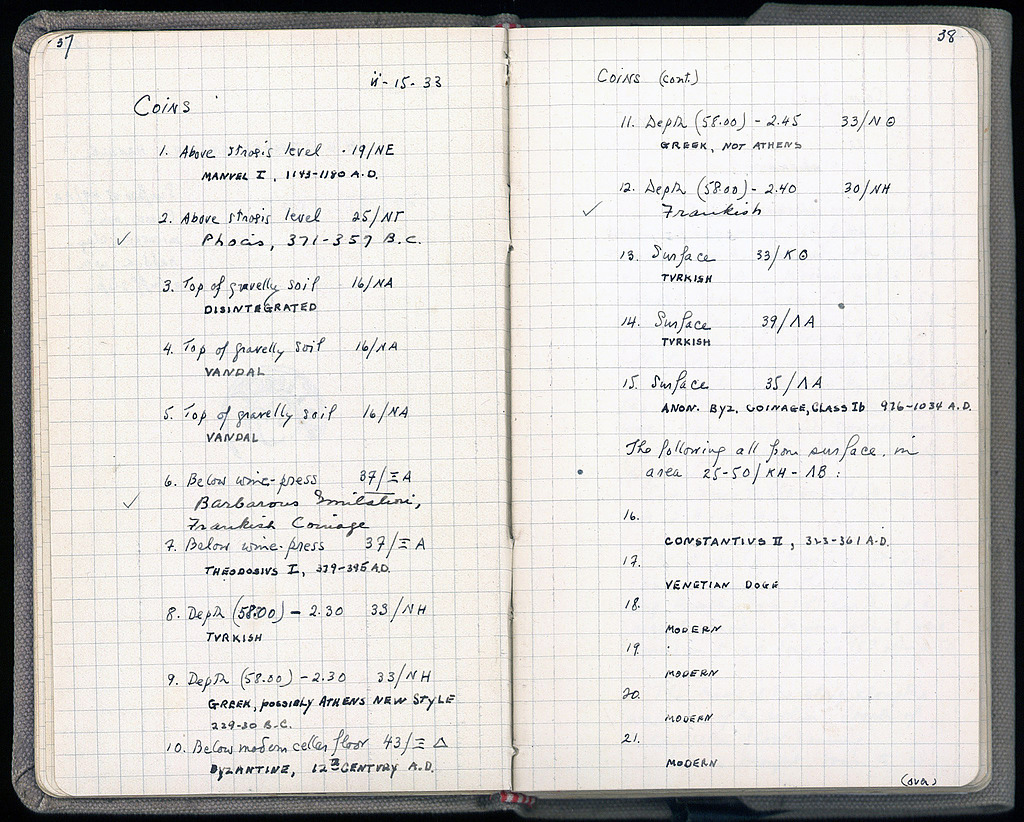 37
ii-15-33
Coins
1. Above strosis level · 19/NE
MANVEL I, 1143-1180 A.D.
2. Above strosis level 25/NT
✓ Phocis, 371-357 B.C.
3. Top of gravelly soil 16/NA
DISINTEGRATED
4. Top of gravelly soil 16/NA
VANDAL
5. Top of gravelly soil 16/NA
VANDAL
6. Below wine-press 37/ΞA
✓ Barbarous Imitation,
Frankish Coinage
7. Below wine-press 37/ΞA
THEODOSIVS I, 379-395 A.D.
8. Depth (58.00) - 2.30 33/NH
TVRKISH
9. Depth (58.00) - 2.30 33/NH
GREEK, possibly ATHENS NEW STYLE
229-30 B.C.
10. Below modern cellar floor 43/ΞΔ
BYZANTINE, 12th CENTVRY A.D.
38
Coins (cont.)
11. Depth (58.00) - 2.45 33/NΘ
GREEK, NOT ATHENS
12. Depth (58.00) - 2.40 30/NH
✓ Frankish
13. Surface 33/KΘ
TVRKISH
14. Surface 39/ΛA
TVRKISH
15. Surface 35/ΛA
ANON. BYZ. COINAGE, CLASS Ib 976-1034 A.D.
The following all from surface, in
area 25-50/KH-ΛB:
16.
CONSTANTIVS II, 323-361 A.D.
17.
VENETIAN DOGE
18.
MODERN
19.
MODERN
20.
MODERN
21.
MODERN
(over)